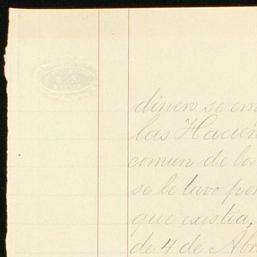 dinero se em
las Hacien
comun de los
se le tuvo por
que existia,
de 4 de Abr